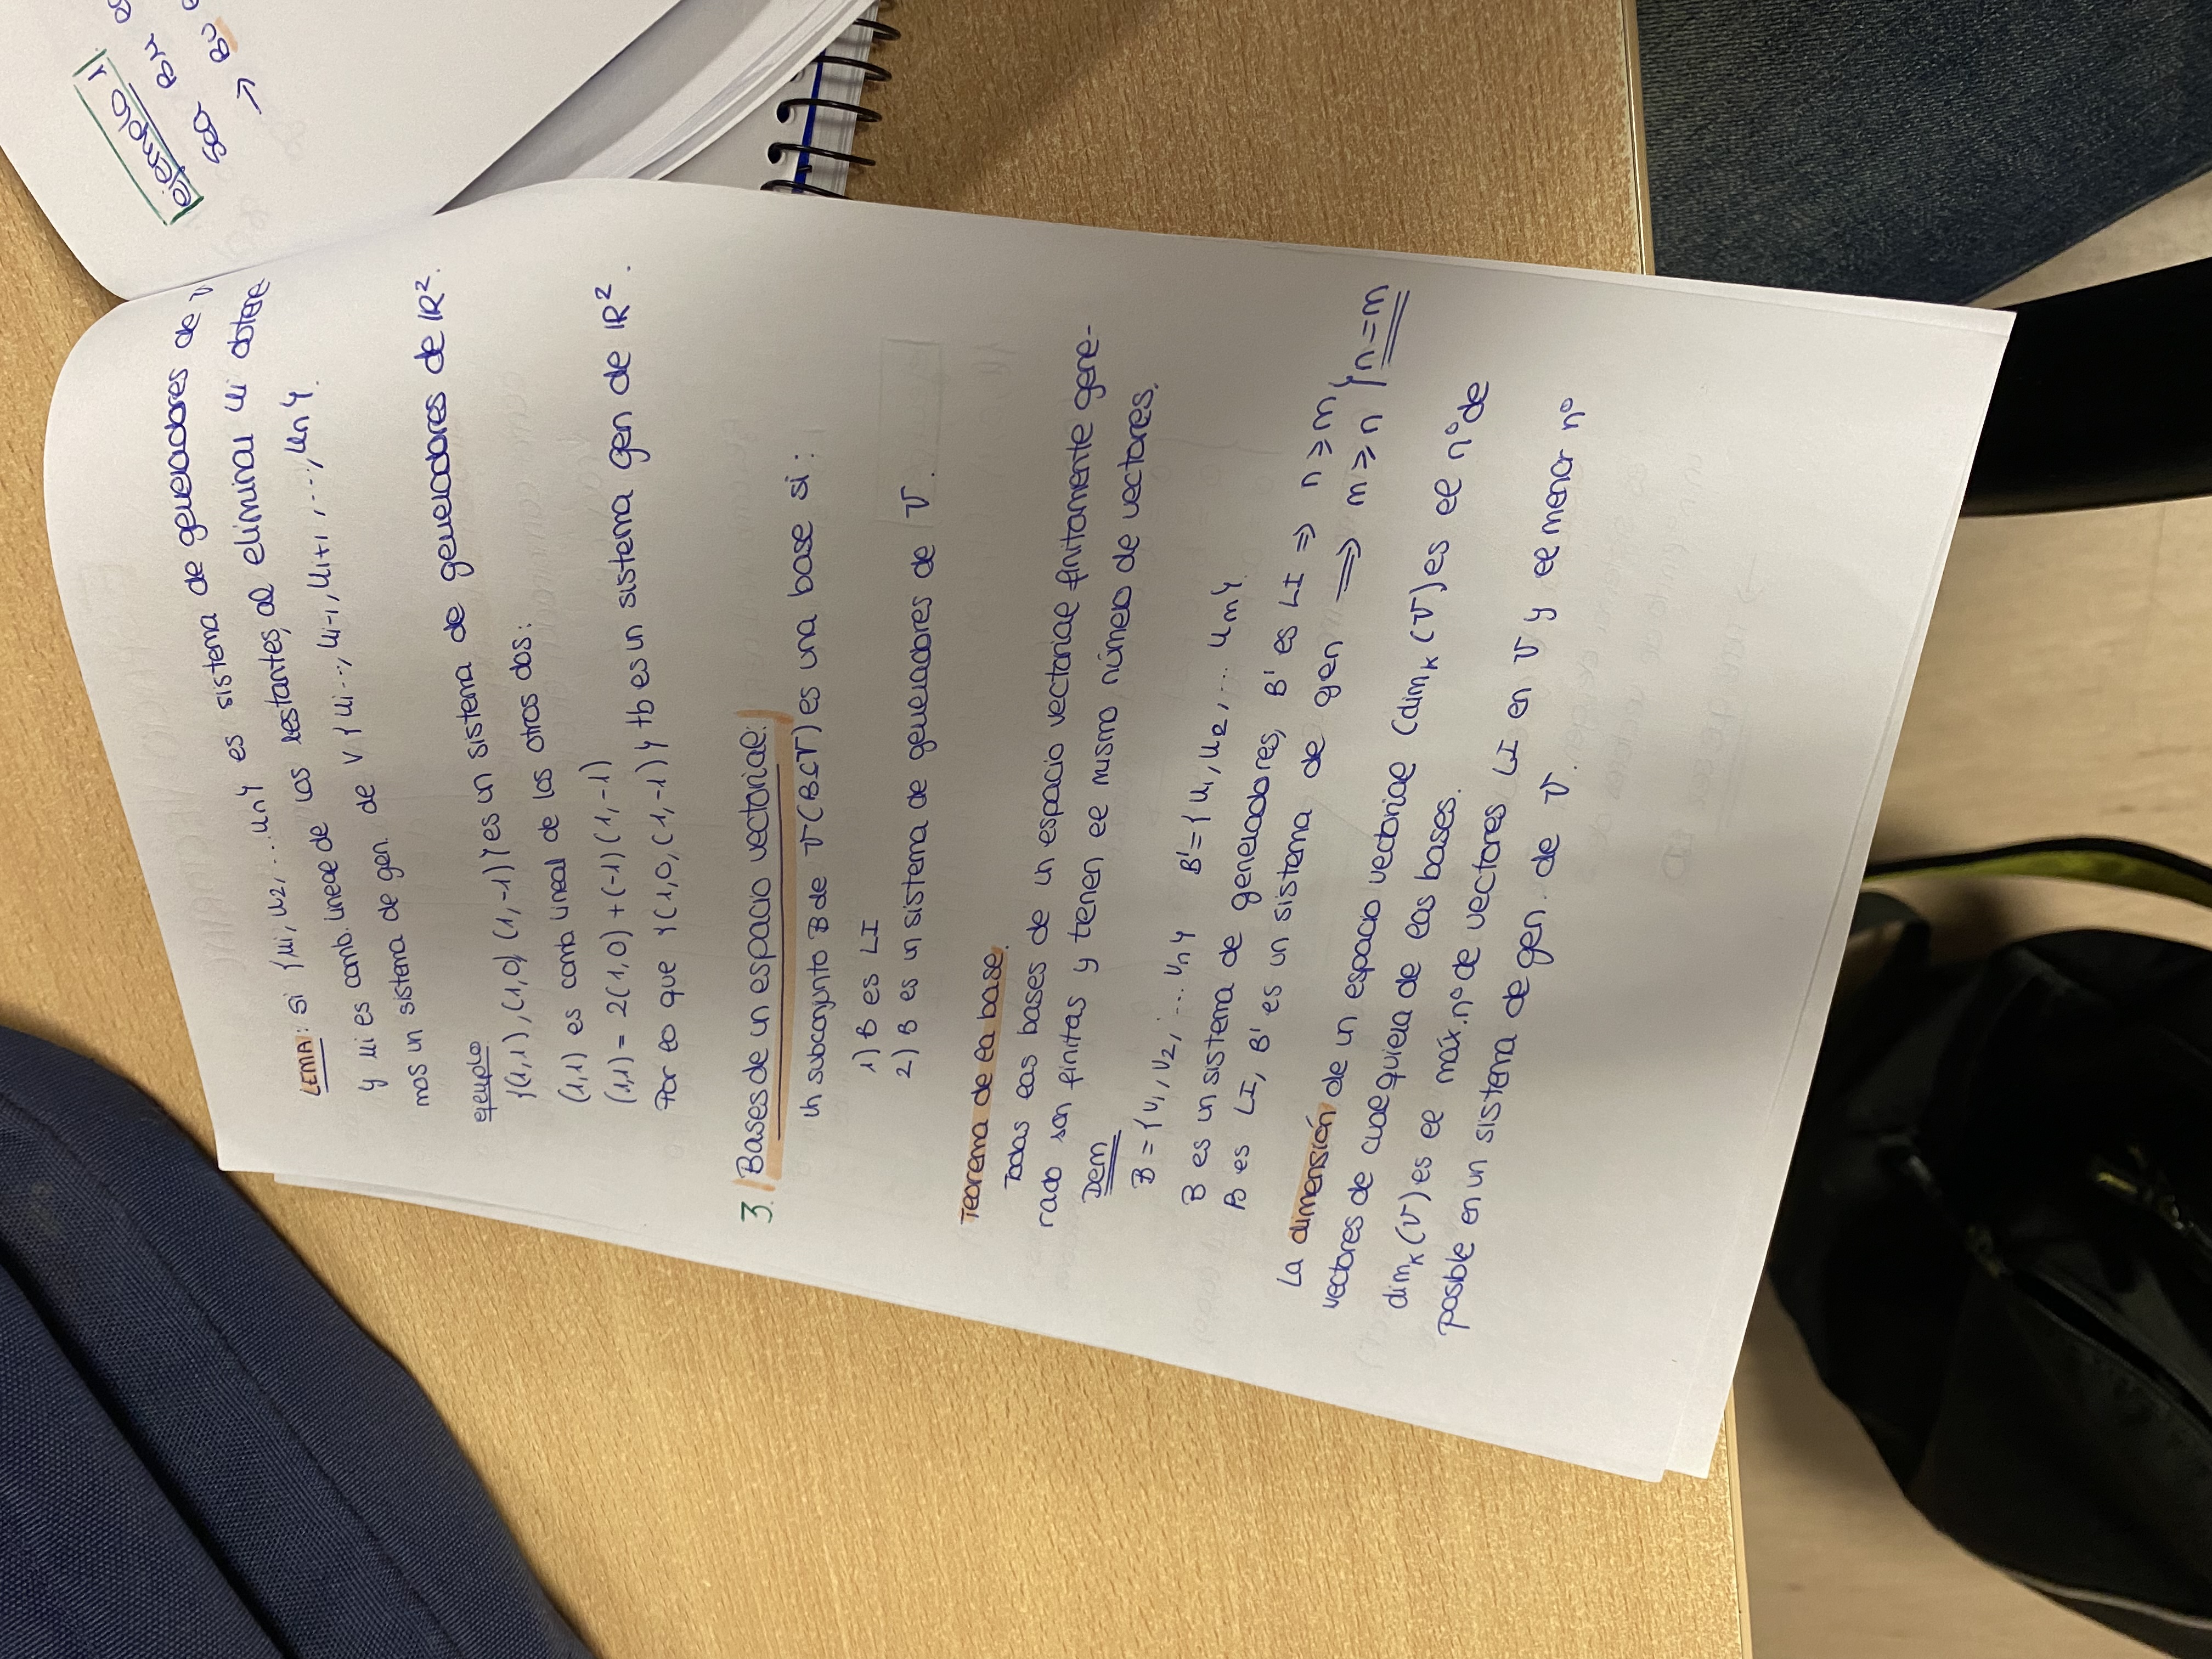 LEMA: si {ui, u2, ... un} es sistema de generadores de V
y ui es comb. lineal de los restantes, al eliminar ui obtene
mos un sistema de gen. de V {ui..., ui-1, ui+1, ..., un}.
ejemplo
{(1,1), (1,0) (1,-1)} es un sistema de generadores de IR².
(1,1) es comb lineal de los otros dos:
(1,1) = 2(1,0) + (-1)(1,-1)
Por lo que {(1,0, (1,-1)} tb es un sistema gen de IR².
3. Bases de un espacio vectorial:
Un subconjunto B de V (B⊆V) es una base si:
1) B es LI
2) B es un sistema de generadores de V.
Teorema de la base.
Todas las bases de un espacio vectorial finitamente gene-
rado son finitas y tienen el mismo número de vectores.
Dem
B = {v1, v2, ... vn} B' = {u1, u2, ... um}
B es un sistema de generadores, B' es LI ⇒ n ⩾ m
B es LI, B' es un sistema de gen ⟹ m ⩾ n } n = m
La dimensión de un espacio vectorial (dimK (V) es el nº de
vectores de cualquiera de las bases.
dimK (V) es el máx. nº de vectores LI en V y el menor nº
posible en un sistema de gen. de V.
ejemplo 1
Sea BU
→ BU